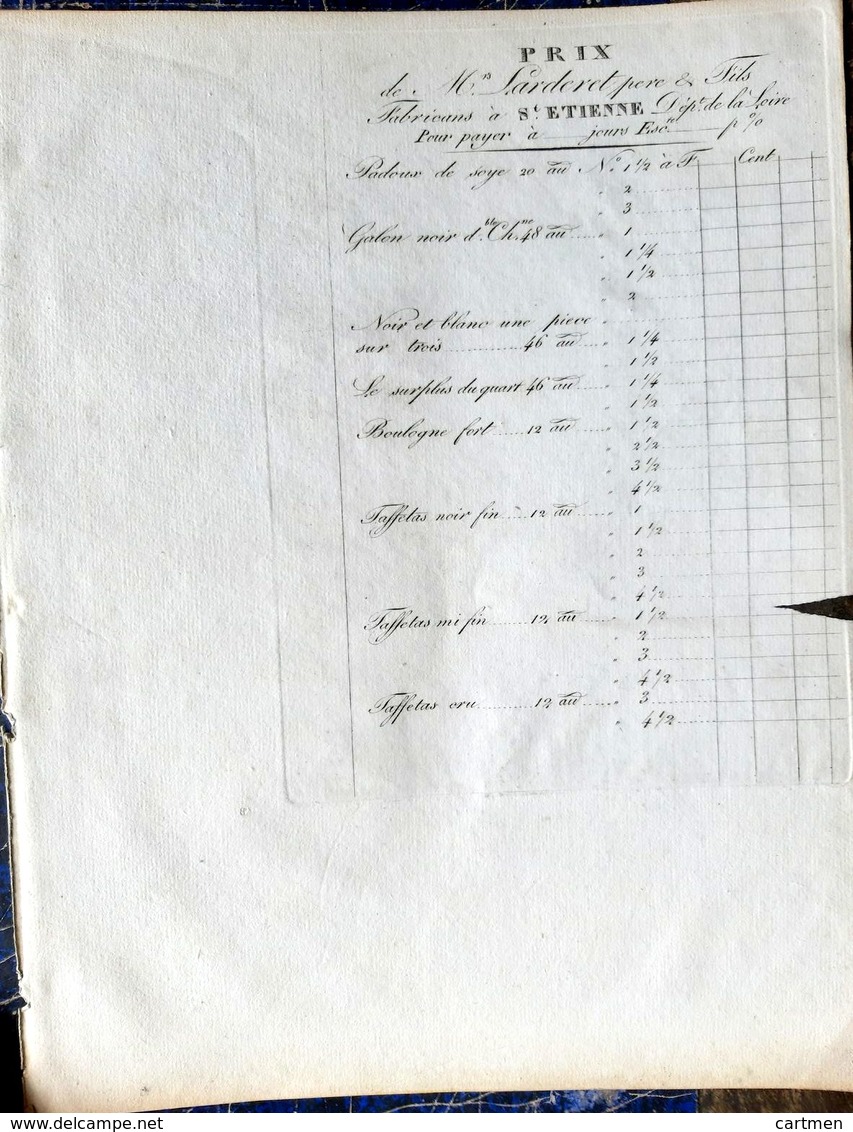 PRIX
de M.rs Larderet pere & Fils
Fabricans à S.t ETIENNE Dép.t de la Loire
Pour payer à ___ jours Esc.te ___ p %
Padoux de soye 20 au N.o 1 1/2 à F Cent
" 2
" 3
Galon noir d.ble Ch.ne 48 au " 1
" 1 1/4
" 1 1/2
" 2
Noir et blanc une piece "
sur trois 46 au " 1 1/4
" 1 1/2
Le surplus du quart 46 au " 1 1/4
" 1 1/2
Boulogne fort 12 au " 1 1/2
" 2 1/2
" 3 1/2
" 4 1/2
Taffetas noir fin 12 au " 1
" 1 1/2
" 2
" 3
" 4 1/2
Taffetas mi fin 12 au " 1 1/2
" 2
" 3
" 4 1/2
Taffetas cru 12 au " 3
" 4 1/2
www.delcampe.net
cartmen